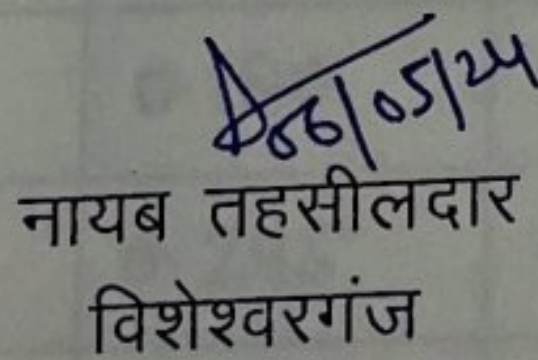 06/05/24
नायब तहसीलदार
विशेश्वरगंज